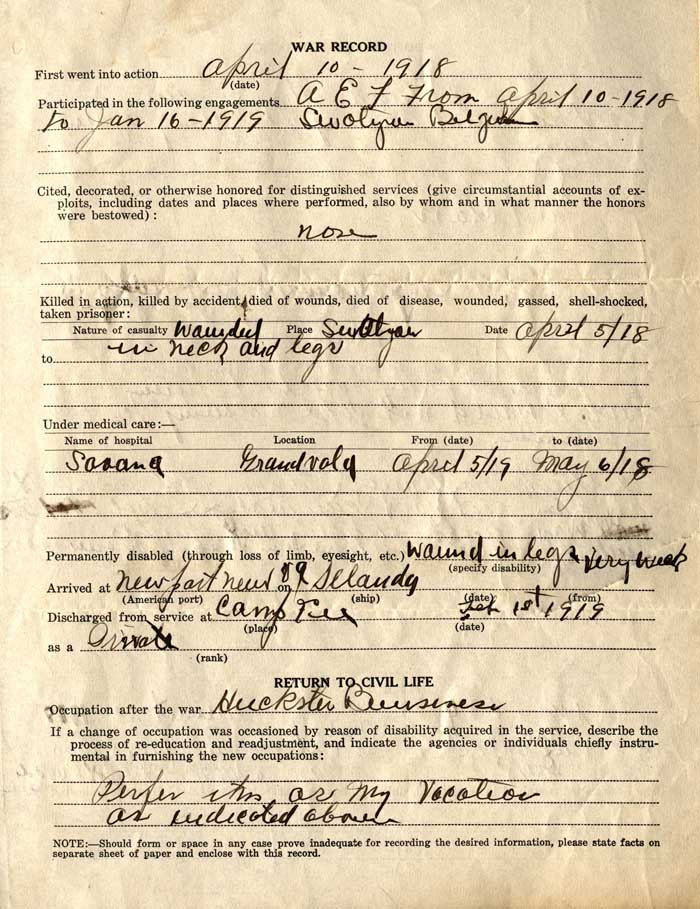 WAR RECORD
First went into action April 10 - 1918
(date)
Participated in the following engagements A E F From April 10-1918
to Jan 16-1919
Cited, decorated, or otherwise honored for distinguished services (give circumstantial accounts of ex-
ploits, including dates and places where performed, also by whom and in what manner the honors
were bestowed) :
none
Killed in action, killed by accident, died of wounds, died of disease, wounded, gassed, shell-shocked,
taken prisoner:
Nature of casualty Wounded Place Date April 5/18
in neck and legs
to
Under medical care:—
Name of hospital Location From (date) to (date)
Savana April 5/19 May 6/18
Permanently disabled (through loss of limb, eyesight, etc.) Wound in legs very weak
(specify disability)
Arrived at newport news on
(American port) (ship) (date) (from)
Discharged from service at Camp Lee Feb 1st 1919
(place) (date)
as a Private
(rank)
RETURN TO CIVIL LIFE
Occupation after the war Huckster Buusiness
If a change of occupation was occasioned by reason of disability acquired in the service, describe the
process of re-education and readjustment, and indicate the agencies or individuals chiefly instru-
mental in furnishing the new occupations:
Perfer this as my vocation
as indicated above
NOTE:—Should form or space in any case prove inadequate for recording the desired information, please state facts on
separate sheet of paper and enclose with this record.